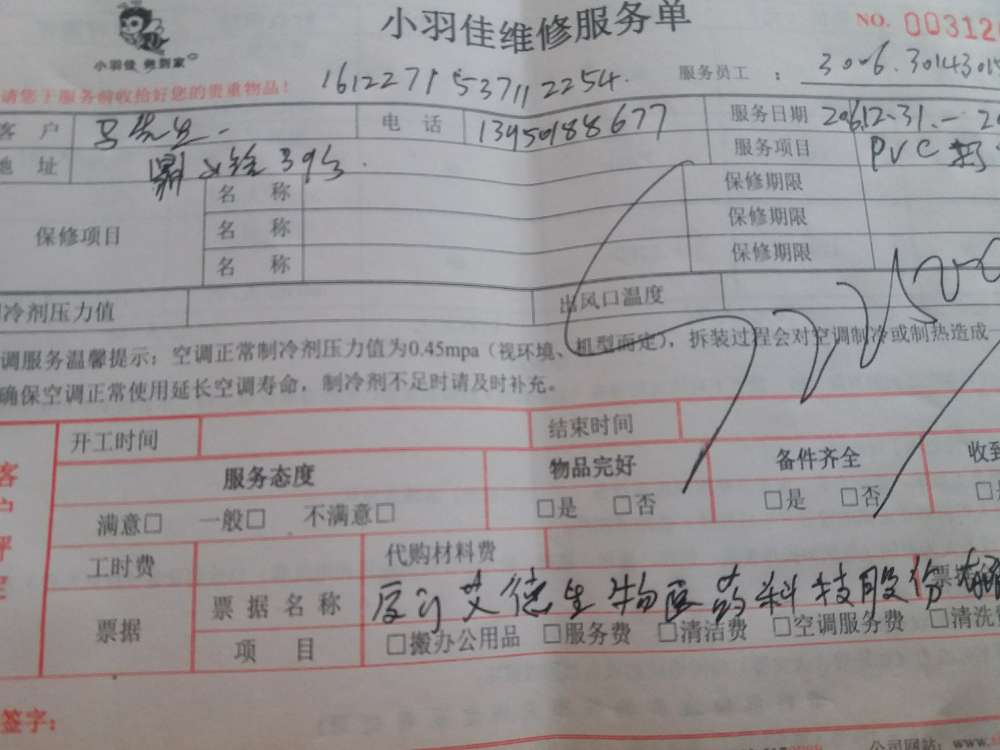 小羽佳维修服务单
NO. 003120
小羽佳 搬到家
请您于服务前收拾好您的贵重物品！
1612271537112254.
服务员工： 3006.3014301
客户 马先生 电话 13950188677 服务日期 2016.12.31.
地址 39号 服务项目 PVC
保修项目 名称 保修期限
名称 保修期限
名称 保修期限
冷剂压力值 出风口温度
调服务温馨提示：空调正常制冷剂压力值为0.45mpa（视环境、机型而定），拆装过程会对空调制冷或制热造成一
确保空调正常使用延长空调寿命，制冷剂不足时请及时补充。
客户评定
开工时间 结束时间
服务态度 物品完好 备件齐全 收到
满意□ 一般□ 不满意□ □是 □否 □是 □否 □
工时费 代购材料费
票据 票据名称 厦门艾德生物医药科技股份有限
项目 □搬办公用品 □服务费 □清洁费 □空调服务费 □清洗费
签字：
公司网站：www.